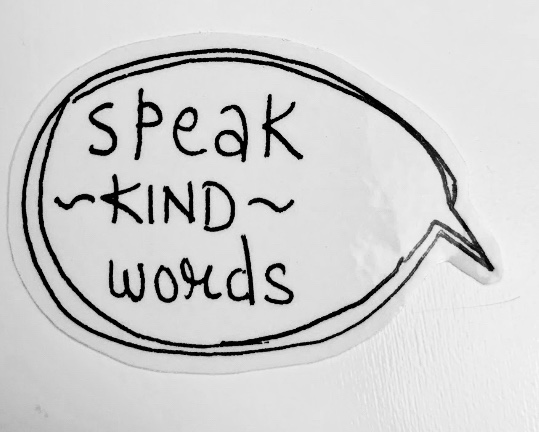 speak
~KIND~
words